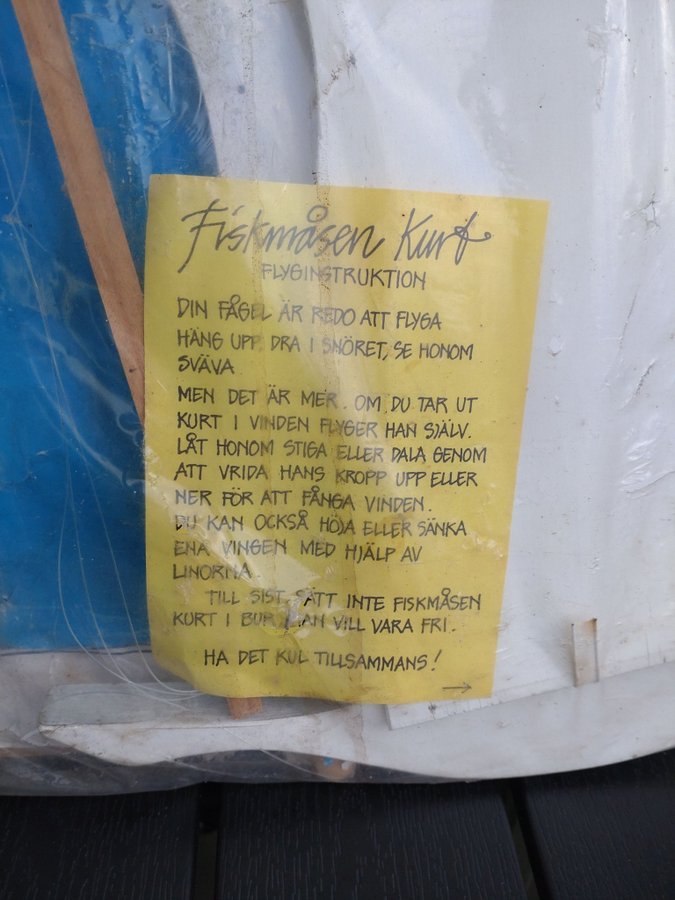 Fiskmåsen Kurt
FLYGINSTRUKTION
DIN FÅGEL ÄR REDO ATT FLYGA
HÄNG UPP, DRA I SNÖRET, SE HONOM
SVÄVA
MEN DET ÄR MER. OM DU TAR UT
KURT I VINDEN FLYGER HAN SJÄLV.
LÅT HONOM STIGA ELLER DALA GENOM
ATT VRIDA HANS KROPP UPP ELLER
NER FÖR ATT FÅNGA VINDEN.
DU KAN OCKSÅ HÖJA ELLER SÄNKA
ENA VINGEN MED HJÄLP AV
LINORNA.
TILL SIST, SÄTT INTE FISKMÅSEN
KURT I BUR. HAN VILL VARA FRI.
HA DET KUL TILLSAMMANS!
→